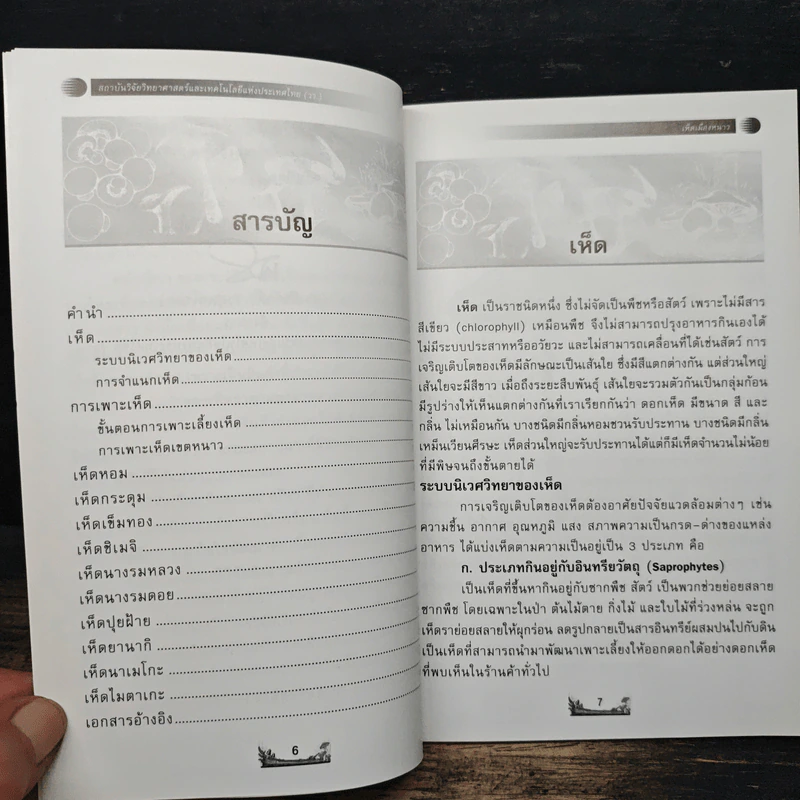 สถาบันวิจัยวิทยาศาสตร์และเทคโนโลยีแห่งประเทศไทย (วว.)
สารบัญ
คำนำ
เห็ด
ระบบนิเวศวิทยาของเห็ด
การจำแนกเห็ด
การเพาะเห็ด
ขั้นตอนการเพาะเลี้ยงเห็ด
การเพาะเห็ดเขตหนาว
เห็ดหอม
เห็ดกระดุม
เห็ดเข็มทอง
เห็ดชิเมจิ
เห็ดนางรมหลวง
เห็ดนางรมดอย
เห็ดปุยฝ้าย
เห็ดยานากิ
เห็ดนาเมโกะ
เห็ดไมตาเกะ
เอกสารอ้างอิง
6
เห็ดเมืองหนาว
เห็ด
เห็ด เป็นราชนิดหนึ่ง ซึ่งไม่จัดเป็นพืชหรือสัตว์ เพราะไม่มีสาร
สีเขียว (chlorophyll) เหมือนพืช จึงไม่สามารถปรุงอาหารกินเองได้
ไม่มีระบบประสาทหรืออวัยวะ และไม่สามารถเคลื่อนที่ได้เช่นสัตว์ การ
เจริญเติบโตของเห็ดมีลักษณะเป็นเส้นใย ซึ่งมีสีแตกต่างกัน แต่ส่วนใหญ่
เส้นใยจะมีสีขาว เมื่อถึงระยะสืบพันธุ์ เส้นใยจะรวมตัวกันเป็นกลุ่มก้อน
มีรูปร่างให้เห็นแตกต่างกันที่เราเรียกกันว่า ดอกเห็ด มีขนาด สี และ
กลิ่น ไม่เหมือนกัน บางชนิดมีกลิ่นหอมชวนรับประทาน บางชนิดมีกลิ่น
เหม็นเวียนศีรษะ เห็ดส่วนใหญ่จะรับประทานได้แต่ก็มีเห็ดจำนวนไม่น้อย
ที่มีพิษจนถึงขั้นตายได้
ระบบนิเวศวิทยาของเห็ด
การเจริญเติบโตของเห็ดต้องอาศัยปัจจัยแวดล้อมต่างๆ เช่น
ความชื้น อากาศ อุณหภูมิ แสง สภาพความเป็นกรด-ด่างของแหล่ง
อาหาร ได้แบ่งเห็ดตามความเป็นอยู่เป็น 3 ประเภท คือ
ก. ประเภทกินอยู่กับอินทรียวัตถุ (Saprophytes)
เป็นเห็ดที่ขึ้นหากินอยู่กับซากพืช สัตว์ เป็นพวกช่วยย่อยสลาย
ซากพืช โดยเฉพาะในป่า ต้นไม้ตาย กิ่งไม้ และใบไม้ที่ร่วงหล่น จะถูก
เห็ดราย่อยสลายให้ผุกร่อน ลดรูปกลายเป็นสารอินทรีย์ผสมปนไปกับดิน
เป็นเห็ดที่สามารถนำมาพัฒนาเพาะเลี้ยงให้ออกดอกได้อย่างดอกเห็ด
ที่พบเห็นในร้านค้าทั่วไป
7